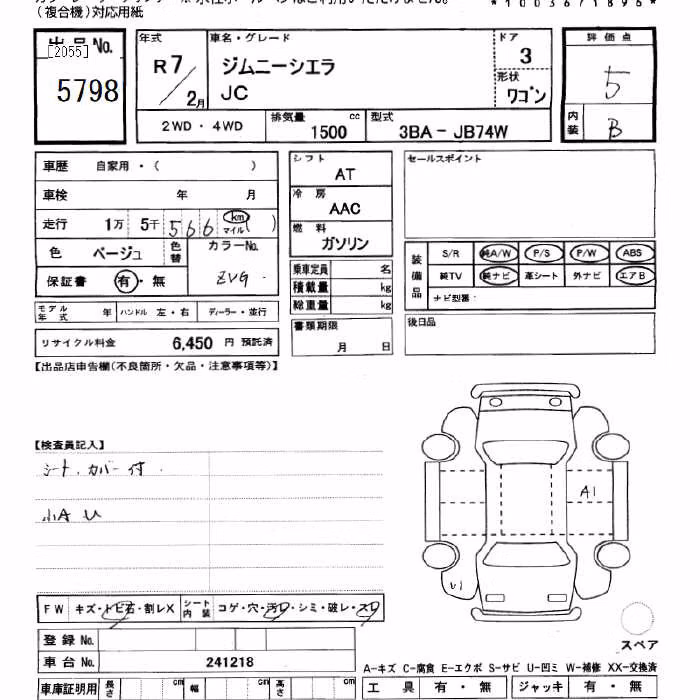 （複合機）対応用紙
*10036718969*
出品No.
[2055]
5798
年式
R7
2月
車名・グレード
ジムニーシエラ
JC
ドア
3
形状
ワゴン
評価点
5
内装
B
2WD・4WD
排気量
1500
cc
型式
3BA－JB74W
車歴
自家用・（ ）
車検
年 月
走行
1万 5千 566 km マイル( )
色
ベージュ
色替
カラーNo.
ZVG
保証書
有・無
モデル年式
年
ハンドル 左・右
ディーラー・並行
リサイクル料金
6,450 円 預託済
シフト
AT
冷房
AAC
燃料
ガソリン
乗車定員 名
積載量 kg
総重量 kg
書類期限
月 日
セールスポイント
装備品
S/R 純A/W P/S P/W ABS
純TV 純ナビ 革シート 外ナビ エアB
ナビ型番：
後日品
【出品店申告欄(不良箇所・欠品・注意事項等)】
【検査員記入】
シート.カバー付.
小A U
A1
U1
FW キズ・トビ石・割レX
シート内装 コゲ・穴・汚レ・シミ・破レ・スレ
登録No.
車台No. 241218
車庫証明用 長さ cm 幅 cm 高さ cm
スペア
A-キズ C-腐食 E-エクボ S-サビ U-凹ミ W-補修 XX-交換済
工具 有・無
ジャッキ 有・無